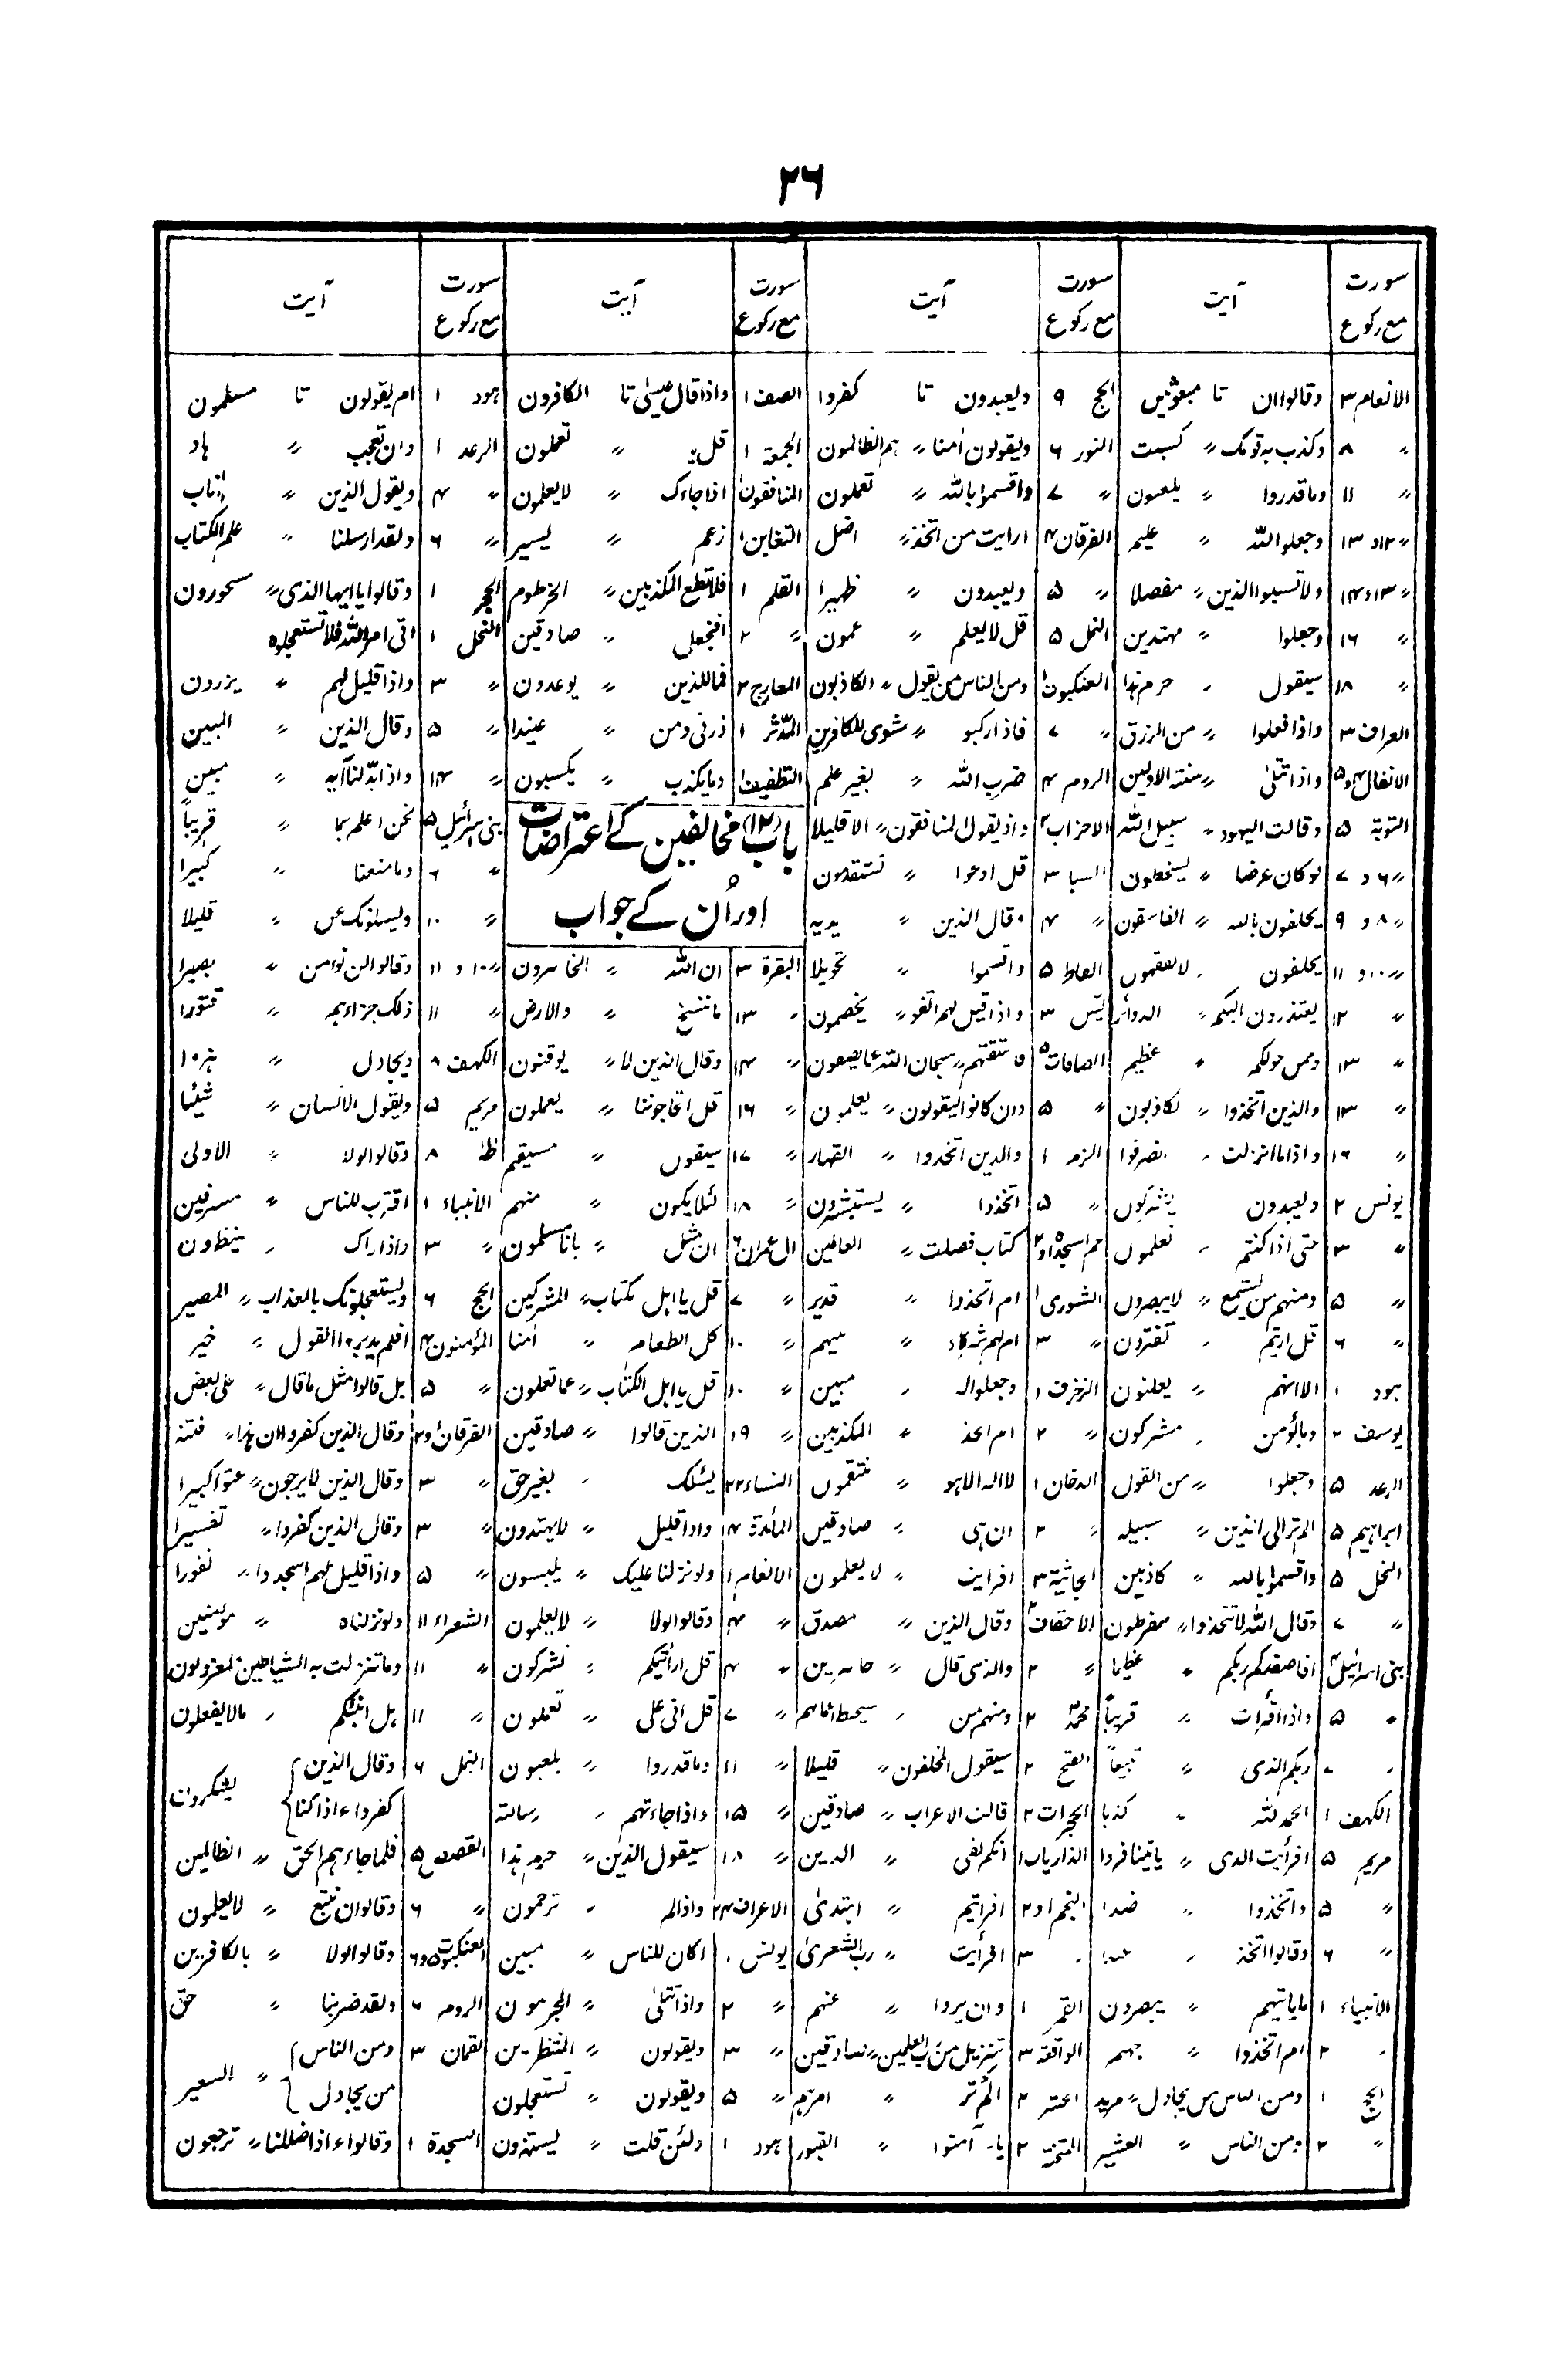 ۲۶
سورت مع رکوع | آیت | سورت مع رکوع | آیت | سورت مع رکوع | آیت | سورت مع رکوع | آیت
الانعام ۳ | وقالوا ان تا مبعوثین | الحج ۹ | ویعبدون تا کفروا | الصف ۱ | واذ قال عیسیٰ تا الکافرون | ہود ۱ | ام یقولون تا مسلمون
〃 ۸ | وکذب بہ قومک 〃 کسبت | النور ۶ | ویقولون اٰمنا 〃 ہم الظالمون | الجمعۃ ۱ | قل یٰ 〃 تعملون | الرعد ۱ | وان تعجب 〃 ہاد
〃 ۱۱ | وما قدروا 〃 یلعبون | 〃 ۷ | واقسموا باللہ 〃 تعملون | المنافقون ۱ | اذا جاءک 〃 لا یعلمون | 〃 ۴ | ویقول الذین 〃 اناب
〃 ۱۲و ۱۳ | وجعلوا للہ 〃 علیم | الفرقان ۴ | ارایت من اتخذ 〃 اضل | التغابن ۱ | زعم 〃 یسیر | 〃 ۶ | ولقد ارسلنا 〃 علم الکتاب
〃 ۱۳و ۱۴ | ولا تسبوا الذین 〃 مفصلا | 〃 ۵ | ویعبدون 〃 ظہیرا | القلم ۱ | فلا تطع المکذبین 〃 الخرطوم | الحجر ۱ | وقالوا یا ایہا الذی 〃 مسحورون
〃 ۱۶ | وجعلوا 〃 مہتدین | النمل ۵ | قل لا یعلم 〃 عمون | 〃 ۲ | افنجعل 〃 صادقین | النحل ۱ | اتی امر اللہ فلا تستعجلوہ
〃 ۱۸ | سیقول 〃 حرم ہذا | العنکبوت ۱ | ومن الناس من یقول 〃 الکاذبون | المعارج ۲ | فمال الذین 〃 یوعدون | 〃 ۳ | واذا قیل لہم 〃 یزرون
العراف ۳ | واذا فعلوا 〃 من الرزق | 〃 ۷ | فاذا رکبو 〃 مثوی للکافرین | المدّثر ۱ | ذرنی ومن 〃 عنیدا | 〃 ۵ | وقال الذین 〃 المبین
الانفال ۴و۵ | واذا تتلیٰ 〃 سنتہ الاولین | الروم ۴ | ضرب اللہ 〃 بغیر علم | التطفیف ۱ | وما یکذب 〃 یکسبون | 〃 ۱۴ | واذا بدّلنا آیہ 〃 مبین
التوبۃ ۵ | وقالت الیہود 〃 سبیل اللہ | الاحزاب ۲ | واذ یقول المنافقون 〃 الا قلیلا | باب (۱۲) مخالفین کے اعتراضات | بنی اسرائیل ۵ | نحن اعلم بما 〃 قریباً
〃 ۶ و ۷ | لو کان عرضا 〃 یسخطون | السبا ۳ | قل ادعوا 〃 تستقدمون | 〃 ۶ | وما منعنا 〃 کبیرا
〃 ۸ و ۹ | یحلفون باللہ 〃 الفاسقون | 〃 ۴ | وقال الذین 〃 یدیہ | اور اُن کے جواب | 〃 ۱۰ | ویسئلونک عن 〃 قلیلا
〃 ۱۰ و ۱۱ | یحلفون 〃 لا یفقہون | ۵ | واقسموا 〃 تحویلا | البقرۃ ۳ | ان اللہ 〃 الخاسرون | 〃 ۱۰ و ۱۱ | وقالوا لن نؤمن 〃 بصیرا
〃 ۱۲ | یعتذرون الیکم 〃 الدوائر | یٰس ۳ | واذا قیل لہم اتقو 〃 یخصمون | 〃 ۱۳ | ما ننسخ 〃 والارض | 〃 ۱۱ | ذلک جزاءہم 〃 قتورا
〃 ۱۳ | وممن حولکم 〃 عظیم | الصافات ۵ | فاستفتہم 〃 سبحان اللہ عما یصفون | 〃 ۱۴ | وقال الذین لا 〃 یوقنون | الکہف ۸ | ویجادل 〃 ہزوا
〃 ۱۳ | والذین اتخذوا 〃 لکاذبون | 〃 ۵ | وان کانوا لیقولون 〃 یعلمون | 〃 ۱۶ | قل اتحاجوننا 〃 یعملون | مریم ۵ | ویقول الانسان 〃 شیئا
〃 ۱۶ | واذا ما انزلت 〃 انصرفوا | الزمر ۱ | والذین اتخذوا 〃 القہار | 〃 ۱۷ | سیقول 〃 مستقیم | طٰہٰ ۸ | وقالوا لولا 〃 الاولیٰ
یونس ۲ | ویعبدون 〃 یشرکون | 〃 ۵ | اتخذوا 〃 یستبشرون | 〃 ۱۸ | لئلا یکون 〃 منہم | الانبیاء ۱ | اقترب للناس 〃 مسرفین
〃 ۳ | حتی اذا کنتم 〃 تعلمون | حم السجدہ ۱و۲ | کتاب فصلت 〃 العالمین | ال عمران ۶ | ان مثل 〃 بانا مسلمون | 〃 ۳ | واذا راک 〃 ینظرون
〃 ۵ | ومنہم من یستمع 〃 لا یبصرون | الشوری ۱ | ام اتخذوا 〃 قدیر | 〃 ۷ | قل یا اہل کتاب 〃 المشرکین | الحج ۶ | ویستعجلونک بالعذاب 〃 المصیر
〃 ۶ | قل ارءیتم 〃 تفترون | 〃 ۳ | ام لہم شرکاء 〃 | 〃 ۱۰ | کل الطعام 〃 اٰمنا | المؤمنون ۴ | افلم یدبروا القول 〃 خیر
ہود ۱ | الا انہم 〃 یعلنون | الزخرف ۱ | وجعلوا لہ 〃 مبین | 〃 ۱۰ | قل یا اہل الکتاب 〃 عما تعملون | 〃 ۵ | بل قالوا مثل ما قال 〃 علی بعض
یوسف ۲ | وما یؤمن 〃 مشرکون | 〃 ۲ | ام اتخذ 〃 المکذبین | 〃 ۱۹ | الذین قالوا 〃 صادقین | الفرقان ۱و۲ | وقال الذین کفروا ان ہذا 〃 فتنۃ
الرعد ۵ | وجعلوا 〃 من القول | الدخان ۱ | لا الہ الا ہو 〃 منتقمون | النساء ۲۲ | یسئلک 〃 بغیر حق | 〃 ۳ | وقال الذین لا یرجون 〃 عتوا کبیرا
ابراہیم ۵ | الم تر الی الذین 〃 سبیلہ | 〃 ۲ | ان ہی 〃 صادقین | المائدۃ ۱۴ | واذا قلیل 〃 لا یہتدون | 〃 ۳ | وقال الذین کفروا 〃 تفسیرا
النحل ۵ | واقسموا باللہ 〃 کاذبین | الجاثیۃ ۳ | افرایت 〃 لا یعلمون | الانعام ۱ | ولو نزلنا علیک 〃 یلبسون | 〃 ۵ | واذا قلیل لہم اسجدوا 〃 نفورا
〃 ۷ | وقال اللہ لا تتخذوا 〃 مفرطون | الاحقاف ۲ | وقال الذین 〃 مصدق | 〃 ۴ | وقالوا لولا 〃 لا یعلمون | الشعراء ۱۱ | ولو نزلناہ 〃 مؤمنین
بنی اسرائیل ۴ | افاصفکم ربکم 〃 عظیما | 〃 ۲ | والذی قال 〃 خاسرین | 〃 ۴ | قل ارأیتکم 〃 تشرکون | 〃 ۱۱ | وما تنزلت بہ الشیاطین لمعزولون
〃 ۵ | واذا قرأت 〃 قریباً | محمد ۲ | ومنہم من 〃 سیحبط اعمالہم | 〃 ۷ | قل انی علی 〃 تعملون | 〃 ۱۱ | ہل انبئکم 〃 ما لا یفعلون
〃 ۷ | ربکم الذی 〃 تبیعاً | الفتح ۲ | سیقول المخلفون 〃 قلیلا | 〃 ۱۱ | وما قدروا 〃 یلعبون | النمل ۶ | وقال الذین
الکہف ۱ | الحمد للہ 〃 کذبا | الحجرات ۲ | قالت الاعراب 〃 صادقین | 〃 ۱۵ | واذا جاءتہم 〃 رسالتہ | کفروا ءاذا کنا یشکرون
مریم ۵ | افرأیت الذی 〃 یاتینا فردا | الذاریات ۱ | انکم لفی 〃 الدین | 〃 ۱۸ | سیقول الذین 〃 حرم ہذا | القصص ۵ | فلما جاءہم الحق 〃 الظالمین
〃 ۵ | واتخذوا 〃 ضدا | النجم ۱و۲ | افرایتم 〃 اہتدیٰ | الاعراف ۲۴ | واذا لم 〃 ترحمون | 〃 ۶ | وقالوا ان نتبع 〃 لا یعلمون
〃 ۶ | وقالوا اتخذ 〃 | 〃 ۳ | افرأیت 〃 رب الشعریٰ | یونس ۱ | اکان للناس 〃 مبین | العنکبوت ۵و۶ | وقالوا لولا 〃 بالکافرین
الانبیاء ۱ | ما یاتیہم 〃 یبصرون | القمر ۱ | وان یروا 〃 عنہم | 〃 ۲ | واذا تتلیٰ 〃 المجرمون | الروم ۶ | ولقد ضربنا 〃 حق
〃 ۲ | ام اتخذوا 〃 جہنم | الواقعۃ ۳ | تنزیل من رب العلمین 〃 صادقین | 〃 ۳ | ویقولون 〃 المنتظرین | لقمان ۳ | ومن الناس
الحج ۱ | ومن الناس من یجادل 〃 مرید | الحشر ۲ | الم تر 〃 امرہم | 〃 ۵ | ویقولون 〃 تستعجلون | من یجادل 〃 السعیر
〃 ۲ | ومن الناس 〃 العشیر | الممتحنۃ ۲ | یا۔ آمنوا 〃 القبور | ہود ۱ | ولئن قلت 〃 لیستہزون | السجدۃ ۱ | وقالوا ءاذا ضللنا 〃 ترجعون